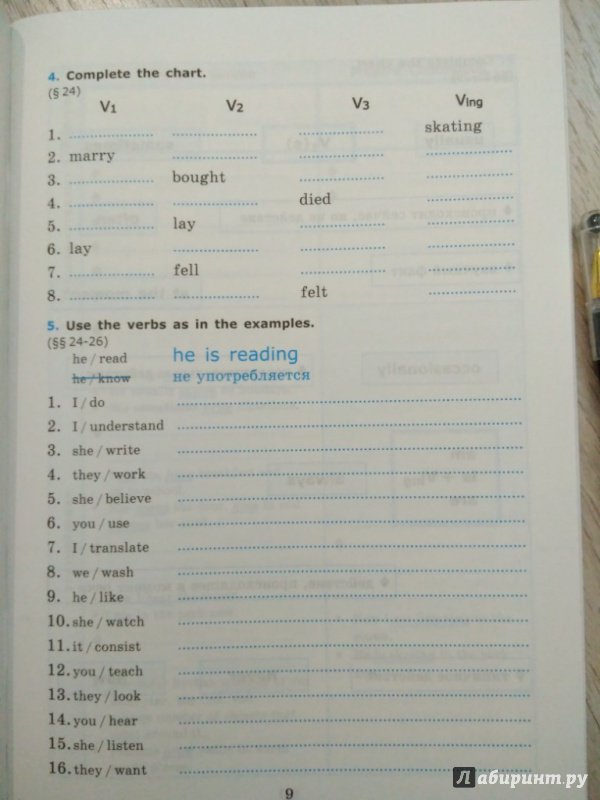 4. Complete the chart.
(§ 24)
V1 V2 V3 Ving
1. skating
2. marry
3. bought
4. died
5. lay
6. lay
7. fell
8. felt
5. Use the verbs as in the examples.
(§§ 24-26)
he / read he is reading
he / know не употребляется
1. I / do
2. I / understand
3. she / write
4. they / work
5. she / believe
6. you / use
7. I / translate
8. we / wash
9. he / like
10. she / watch
11. it / consist
12. you / teach
13. they / look
14. you / hear
15. she / listen
16. they / want
9
Лабиринт.ру